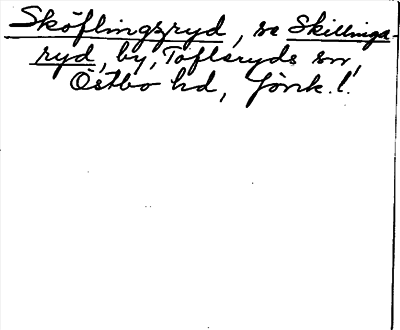 Sköflingsryd, se Skillinga-
ryd, by, Tofteryds sn,
Östbo hd, Jönk. l.